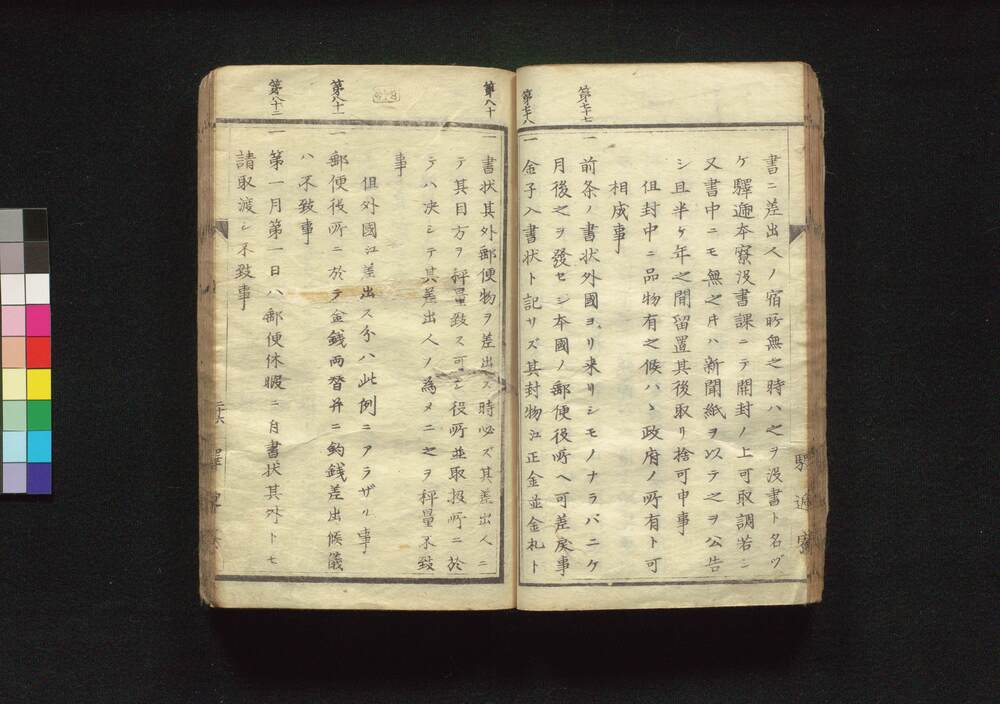 書ニ差出人ノ宿所無之時ハ之ヲ没書ト名ヅ
ケ驛逓本寮没書課ニテ開封ノ上可取調若シ
又書中ニモ無之片ハ新聞紙ヲ以テ之ヲ公告
シ且半ケ年之間留置其後取リ捨可申事
但封中ニ品物有之候ハヽ政府ノ所有ト可
相成事
第七十七
一 前条ノ書状外國ヨリ来リシモノナラバ二ケ
月後之ヲ發セシ本國ノ郵便役所ヘ可差戻事
第七十八
一 金子入書状ト記サズ其封物江正金並金札ト
驛逓寮
第八十
一 書状其外郵便物ヲ差出ス時必ズ其差出人ニ
テ其目方ヲ秤量致ス可シ役所並取扱所ニ於
テハ决シテ其差出人ノ為メニ之ヲ秤量不致
事
但外國江差出ス分ハ此例ニアラザル事
第八十一
一 郵便役所ニ於テ金銭両替并ニ釣銭差出候儀
ハ不致事
第八十二
一 第一月第一日ハ郵便休暇ニ自書状其外トモ
請取渡シ不致事